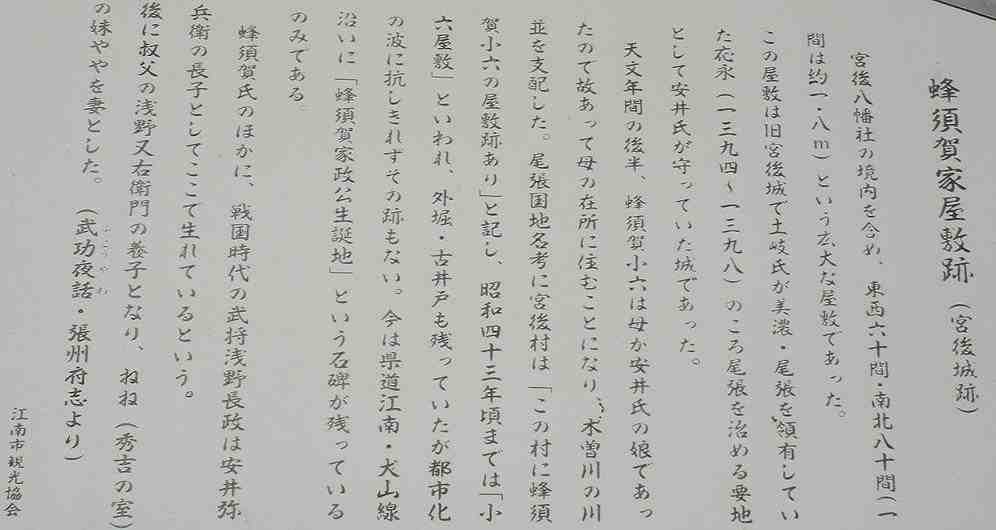 蜂須賀家屋敷跡（宮後城跡）
宮後八幡社の境内を含め、東西六十間・南北八十間（一
間は約一・八ｍ）という広大な屋敷であった。
この屋敷は旧宮後城で土岐氏が美濃・尾張を領有してい
た応永（一三九四～一三九八）のころ尾張を治める要地
として安井氏が守っていた城であった。
天文年間の後半、蜂須賀小六は母が安井氏の娘であっ
たので故あって母の在所に住むことになり、木曽川の川
並を支配した。尾張国地名考に宮後村は「この村に蜂須
賀小六の屋敷跡あり」と記し、昭和四十三年頃までは「小
六屋敷」といわれ、外堀・古井戸も残っていたが都市化
の波に抗しきれずその跡もない。今は県道江南・犬山線
沿いに「蜂須賀家政公生誕地」という石碑が残っている
のみである。
蜂須賀氏のほかに、戦国時代の武将浅野長政は安井弥
兵衛の長子としてここで生れているという。
後に叔父の浅野又右衛門の養子となり、ねね（秀吉の室）
の妹ややを妻とした。（武功夜話・張州府志より）
ぶこうやわ
江南市観光協会